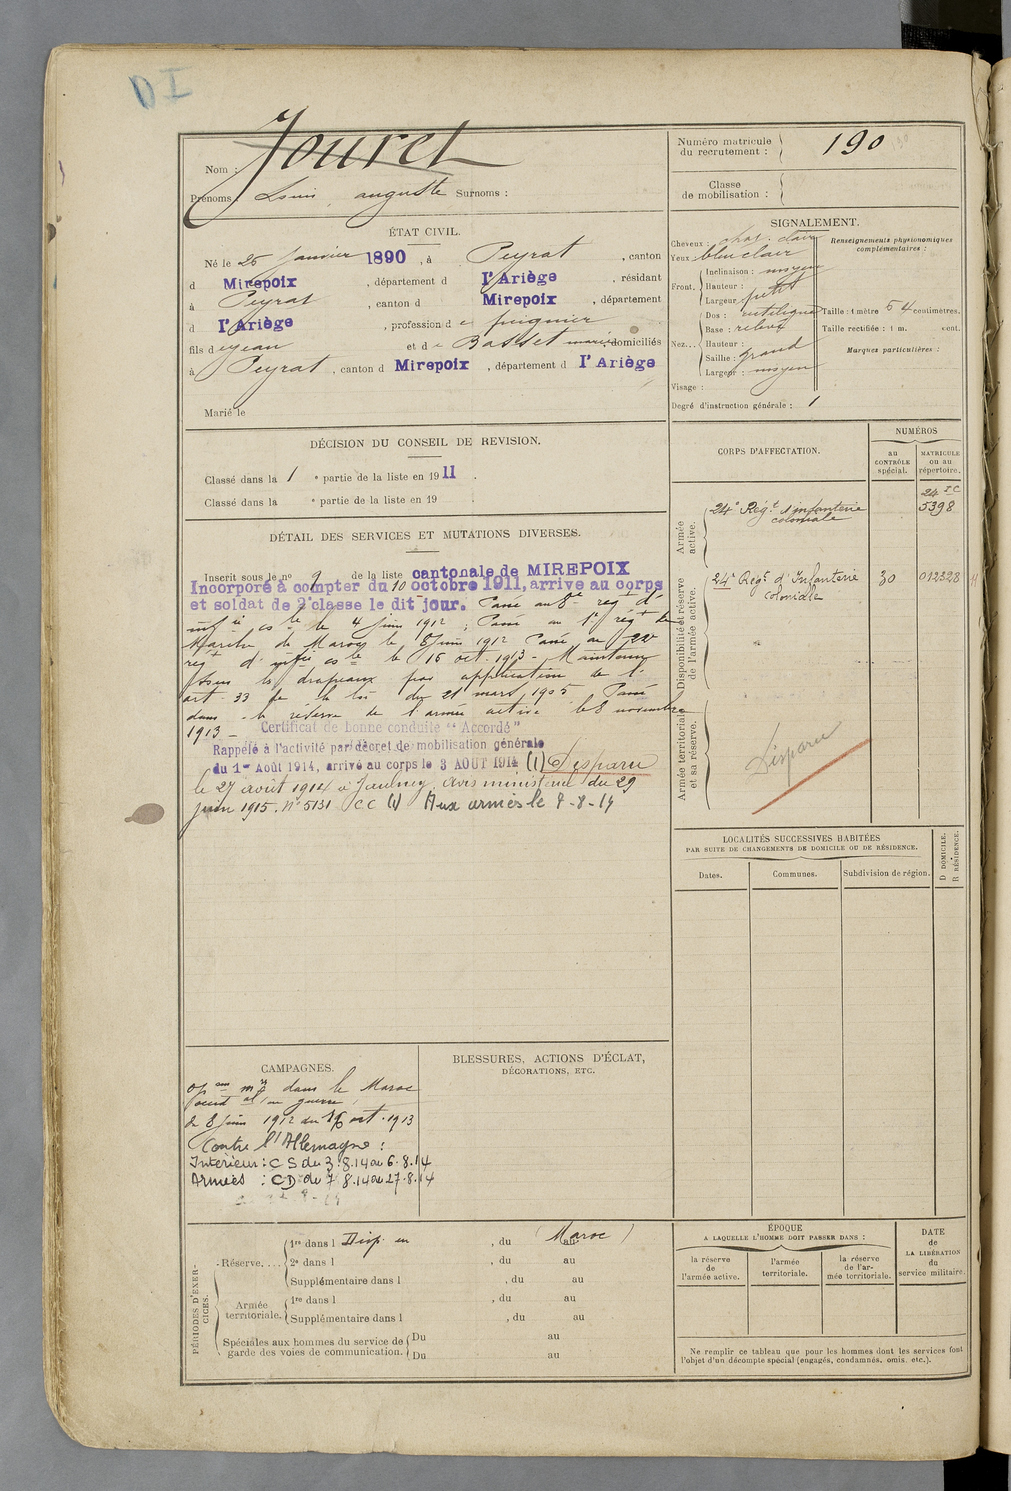 DI
Nom : Jouret
Prénoms : Louis auguste Surnoms :
Numéro matricule du recrutement : 190
Classe de mobilisation :
ÉTAT CIVIL.
Né le 25 janvier 1890, à Peyrat, canton
d Mirepoix, département d l'Ariège, résidant
à Peyrat, canton d Mirepoix, département
d l'Ariège, profession d e peignier
fils de jean et de Basset mariés domiciliés
à Peyrat, canton d Mirepoix, département d l'Ariège
Marié le
SIGNALEMENT.
Cheveux : chat. clair
Yeux bleu clair
Front. Inclinaison : moyen
Hauteur :
Largeur petit
Nez... Dos : rectiligne
Base : relevé
Hauteur :
Saillie : grand
Largeur : moyen
Visage :
Degré d'instruction générale : 1
Renseignements physionomiques complémentaires :
Taille : 1 mètre 54 centimètres.
Taille rectifiée : 1 m. cent.
Marques particulières :
DÉCISION DU CONSEIL DE REVISION.
Classé dans la 1 e partie de la liste en 1911.
Classé dans la e partie de la liste en 19 .
DÉTAIL DES SERVICES ET MUTATIONS DIVERSES.
Inscrit sous le no 9 de la liste cantonale de MIREPOIX
Incorporé à compter du 10 octobre 1911, arrive au corps
et soldat de 2e classe le dit jour. Passé au 8e régt d'
infie cole le 4 juin 1912 ; Passé au 1r régt de
Marche du Maroc le 8 juin 1912 Passé au 24e
régt d'infie cole le 16 oct. 1913 - Maintenu
sous les drapeaux par application de l'
art 33 de la loi du 21 mars 1905 Passé
dans la réserve de l'armée active le 8 novembre
1913 - Certificat de bonne conduite "Accordé"
Rappelé à l'activité par décret de mobilisation générale
du 1er Août 1914, arrivé au corps le 3 AOUT 1914 (1) Disparu
le 27 août 1914 à Jaulnay, avis ministériel du 29
juin 1915. No 5131 CC (1) Aux armées le 7-8-14
CORPS D'AFFECTATION.
NUMÉROS
au CONTRÔLE spécial.
MATRICULE ou au répertoire.
Armée active.
24e Régt d'infanterie coloniale
24 IC
5398
Disponibilité et réserve de l'armée active.
24e Régt d'Infanterie coloniale
30
012328
Armée territoriale et sa réserve.
Disparu
LOCALITÉS SUCCESSIVES HABITÉES
PAR SUITE DE CHANGEMENTS DE DOMICILE OU DE RÉSIDENCE.
Dates.
Communes.
Subdivision de région.
D DOMICILE.
R RÉSIDENCE.
CAMPAGNES.
opons mres dans le Maroc
occidal en guerre
du 8 juin 1912 au 16 oct. 1913
Contre l'Allemagne :
Intérieur : CS du 3.8.14 au 6.8.14
Armées : CD du 7.8.14 au 27.8.14
BLESSURES, ACTIONS D'ÉCLAT,
DÉCORATIONS, ETC.
PÉRIODES D'EXERCICES.
Réserve.... 1re dans l Disp. en (Maroc), du au
2e dans l , du au
Supplémentaire dans l , du au
Armée territoriale. 1re dans l , du au
Supplémentaire dans l , du au
Spéciales aux hommes du service de garde des voies de communication. Du au
Du au
ÉPOQUE
A LAQUELLE L'HOMME DOIT PASSER DANS :
la réserve de l'armée active.
l'armée territoriale.
la réserve de l'armée territoriale.
DATE de LA LIBÉRATION du service militaire.
Ne remplir ce tableau que pour les hommes dont les services font
l'objet d'un décompte spécial (engagés, condamnés, omis, etc.).